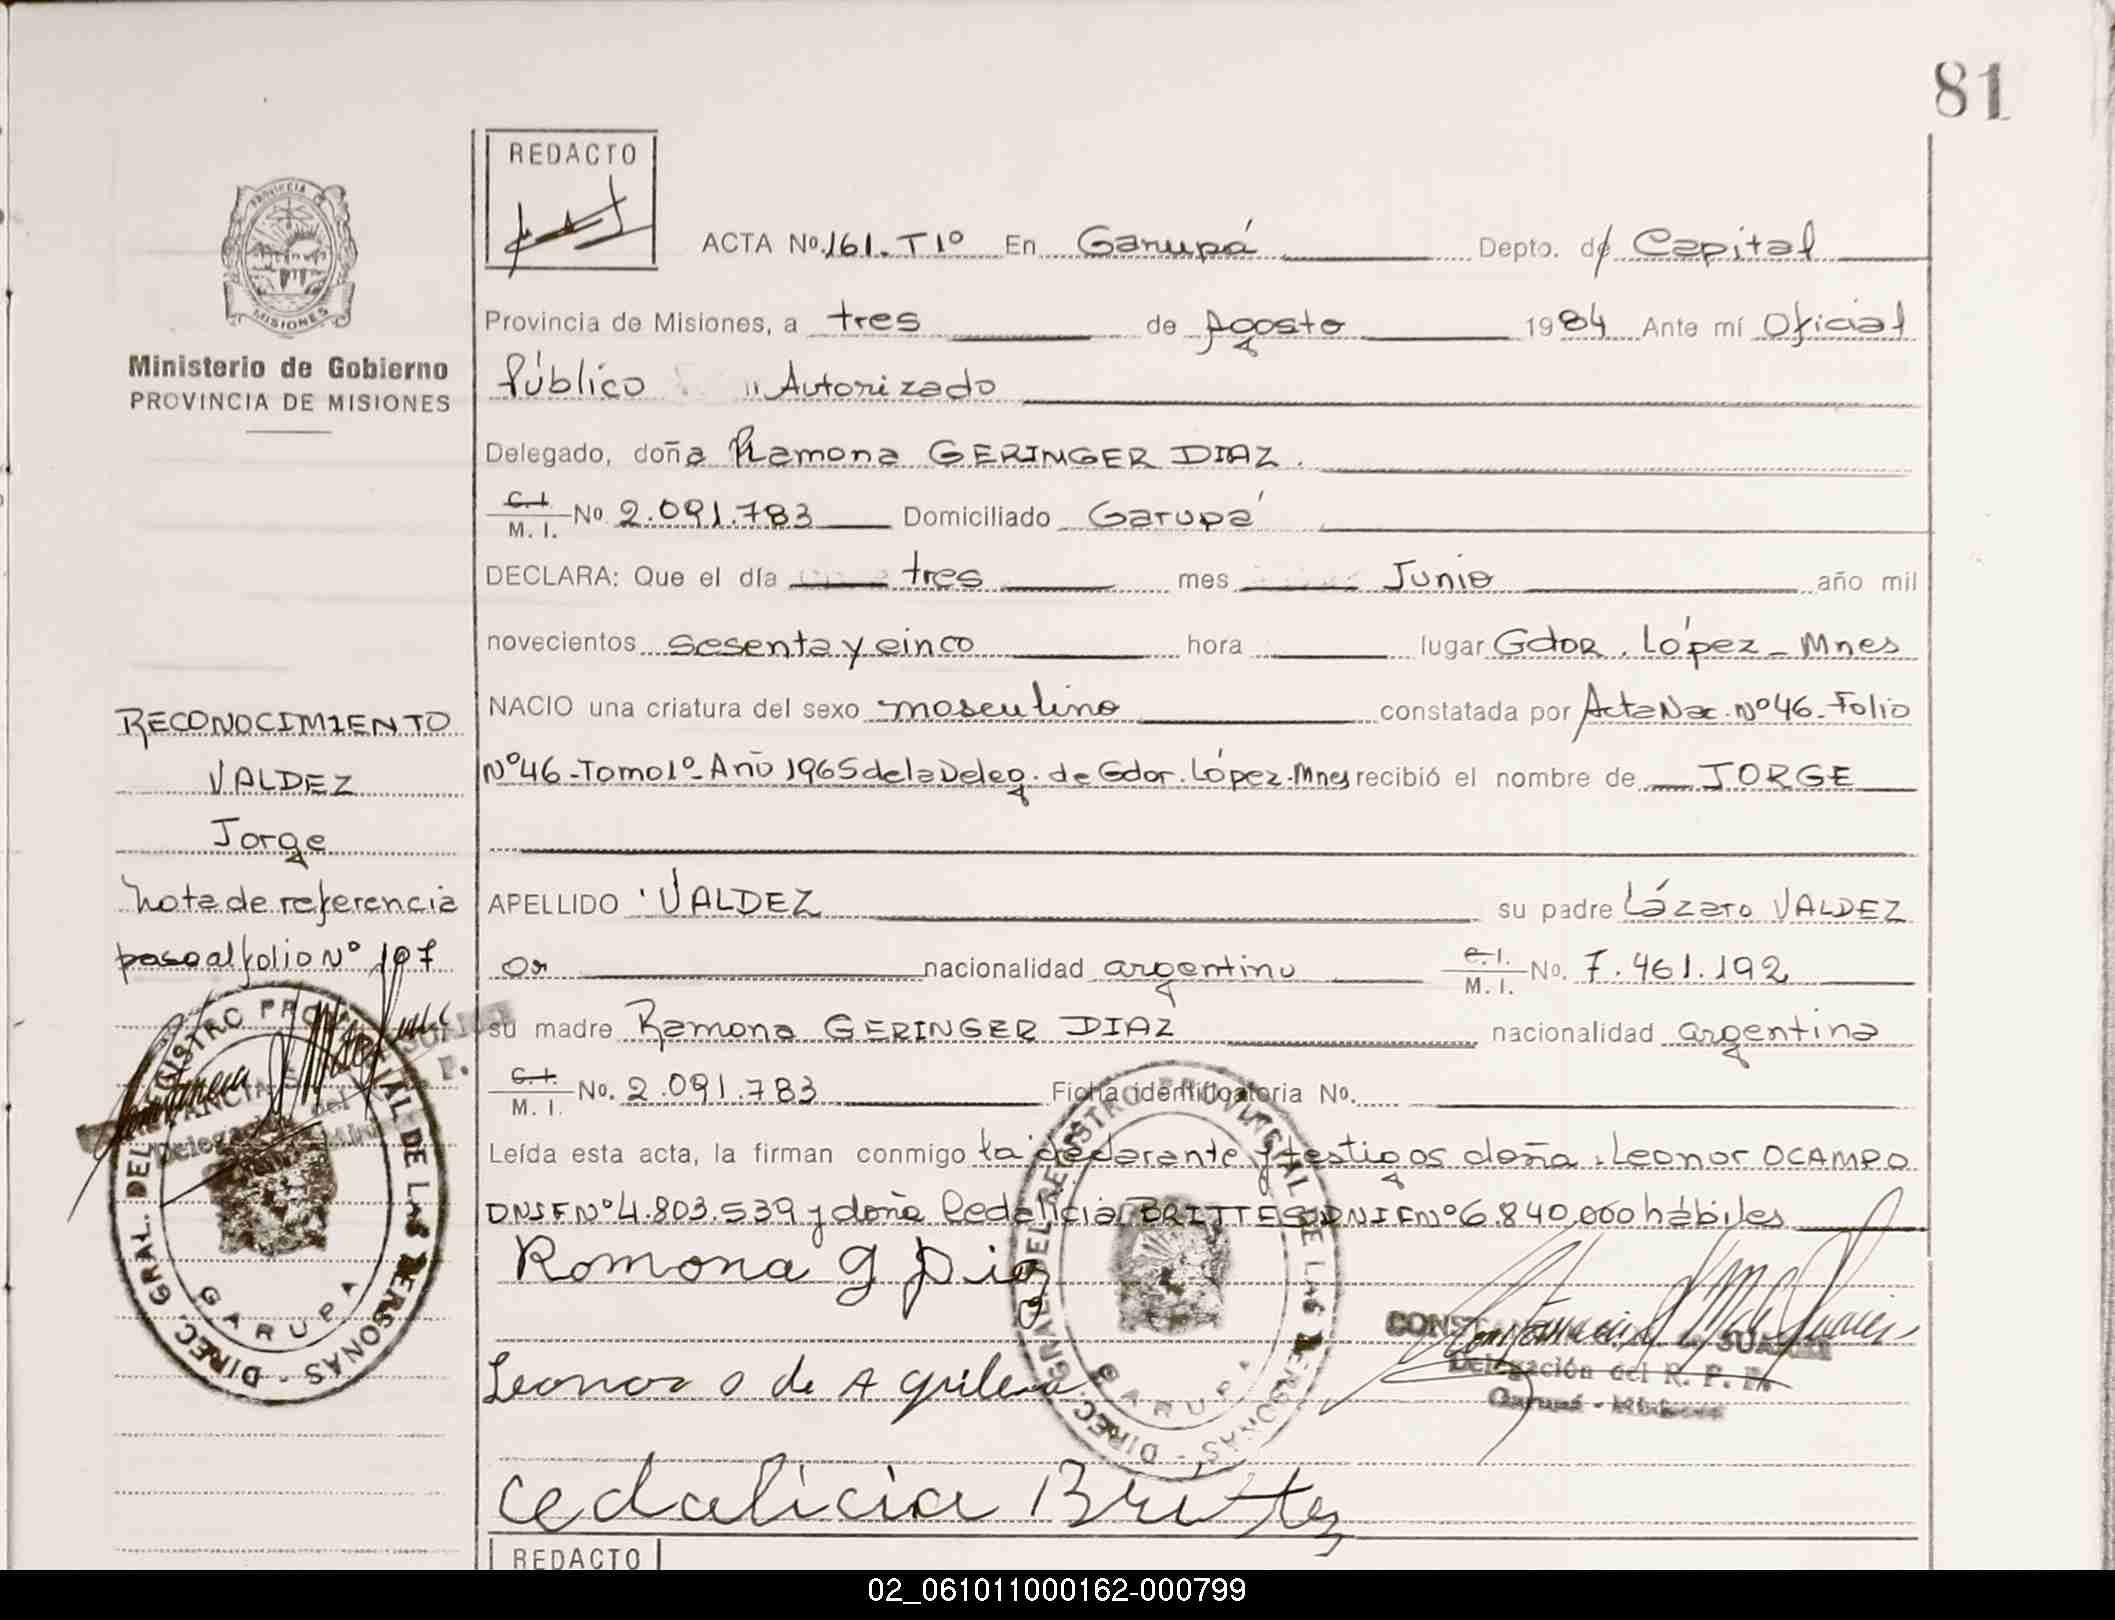 81
REDACTO
PROVINCIA
MISIONES
Ministerio de Gobierno
PROVINCIA DE MISIONES
ACTA No. 161. T1º En Garupá Depto. de Capital
Provincia de Misiones, a tres de Agosto 1984 Ante mí Oficial
Público Autorizado
Delegado, doña Ramona GERINGER DIAZ.
C.I. M. I. No 2.091.783 Domiciliado Garupá
DECLARA: Que el día tres mes Junio año mil
novecientos sesenta y cinco hora lugar Gdor. López - Mnes
NACIO una criatura del sexo masculino constatada por Acta Nac. Nº 46 - Folio
Nº 46 - Tomo 1º - Año 1965 de la Deleg. de Gdor. López - Mnes recibió el nombre de JORGE
APELLIDO VALDEZ su padre Lázaro VALDEZ
or nacionalidad argentino C.I. M. I. No. 7.461.192
su madre Ramona GERINGER DIAZ nacionalidad argentina
C.I. M. I. No. 2.091.783 Ficha identificatoria No.
Leída esta acta, la firman conmigo la declarante y testigos doña Leonor OCAMPO
DNIF Nº 4.803.539 y doña Cedalicia BRITTES DNIF Nº 6.840.000 hábiles
Romona g Diaz
Leonor o de Aguilera
Cedalicia Brittez
RECONOCIMIENTO
VALDEZ
Jorge
Nota de referencia
paso al folio Nº 107
DIREC. GRAL. DEL REGISTRO PROVINCIAL DE LAS PERSONAS - GARUPA
DIREC. GRAL. DEL REGISTRO PROVINCIAL DE LAS PERSONAS - GARUPA
SUAREZ
Delegación del R. P. P.
Garupá - Misiones
REDACTO
02_061011000162-000799